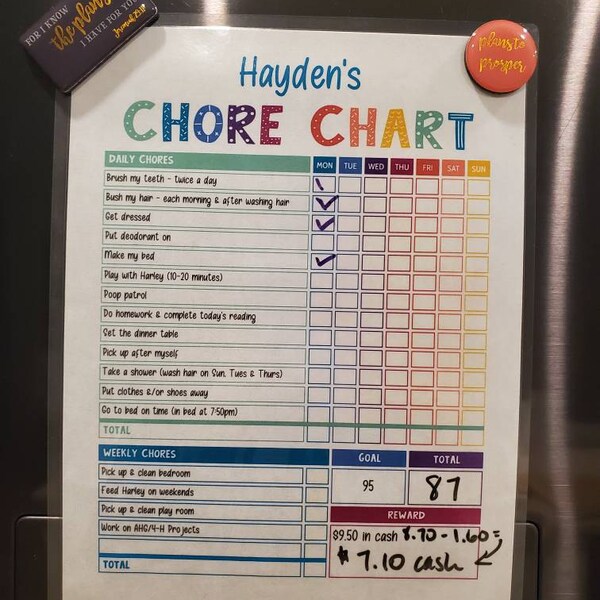 FOR I KNOW
the plans
I HAVE FOR YOU
plans to
prosper
Hayden's
CHORE CHART
DAILY CHORES MON TUE WED THU FRI SAT SUN
Brush my teeth - twice a day
Bush my hair - each morning & after washing hair
Get dressed
Put deodorant on
Make my bed
Play with Harley (10-20 minutes)
Poop patrol
Do homework & complete today's reading
Set the dinner table
Pick up after myself
Take a shower (wash hair on Sun, Tues & Thurs)
Put clothes &/or shoes away
Go to bed on time (in bed at 7:50pm)
TOTAL
WEEKLY CHORES
Pick up & clean bedroom
Feed Harley on weekends
Pick up & clean play room
Work on AHG/4-H Projects
TOTAL
GOAL TOTAL
95 87
REWARD
$9.50 in cash 8.70 - 1.60 =
$7.10 cash